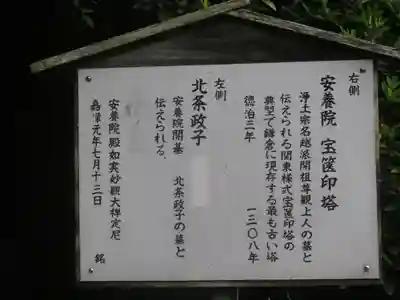 右側
安養院 宝篋印塔
浄土宗名越派開祖尊観上人の墓と
伝えられる関東様式宝篋印塔の
典型で鎌倉に現存する最も古い塔
徳治三年 一三〇八年
左側
北条政子
安養院開基 北条政子の墓と
伝えられる。
安養院殿如実妙観大禅定尼
嘉禄元年七月十三日 銘